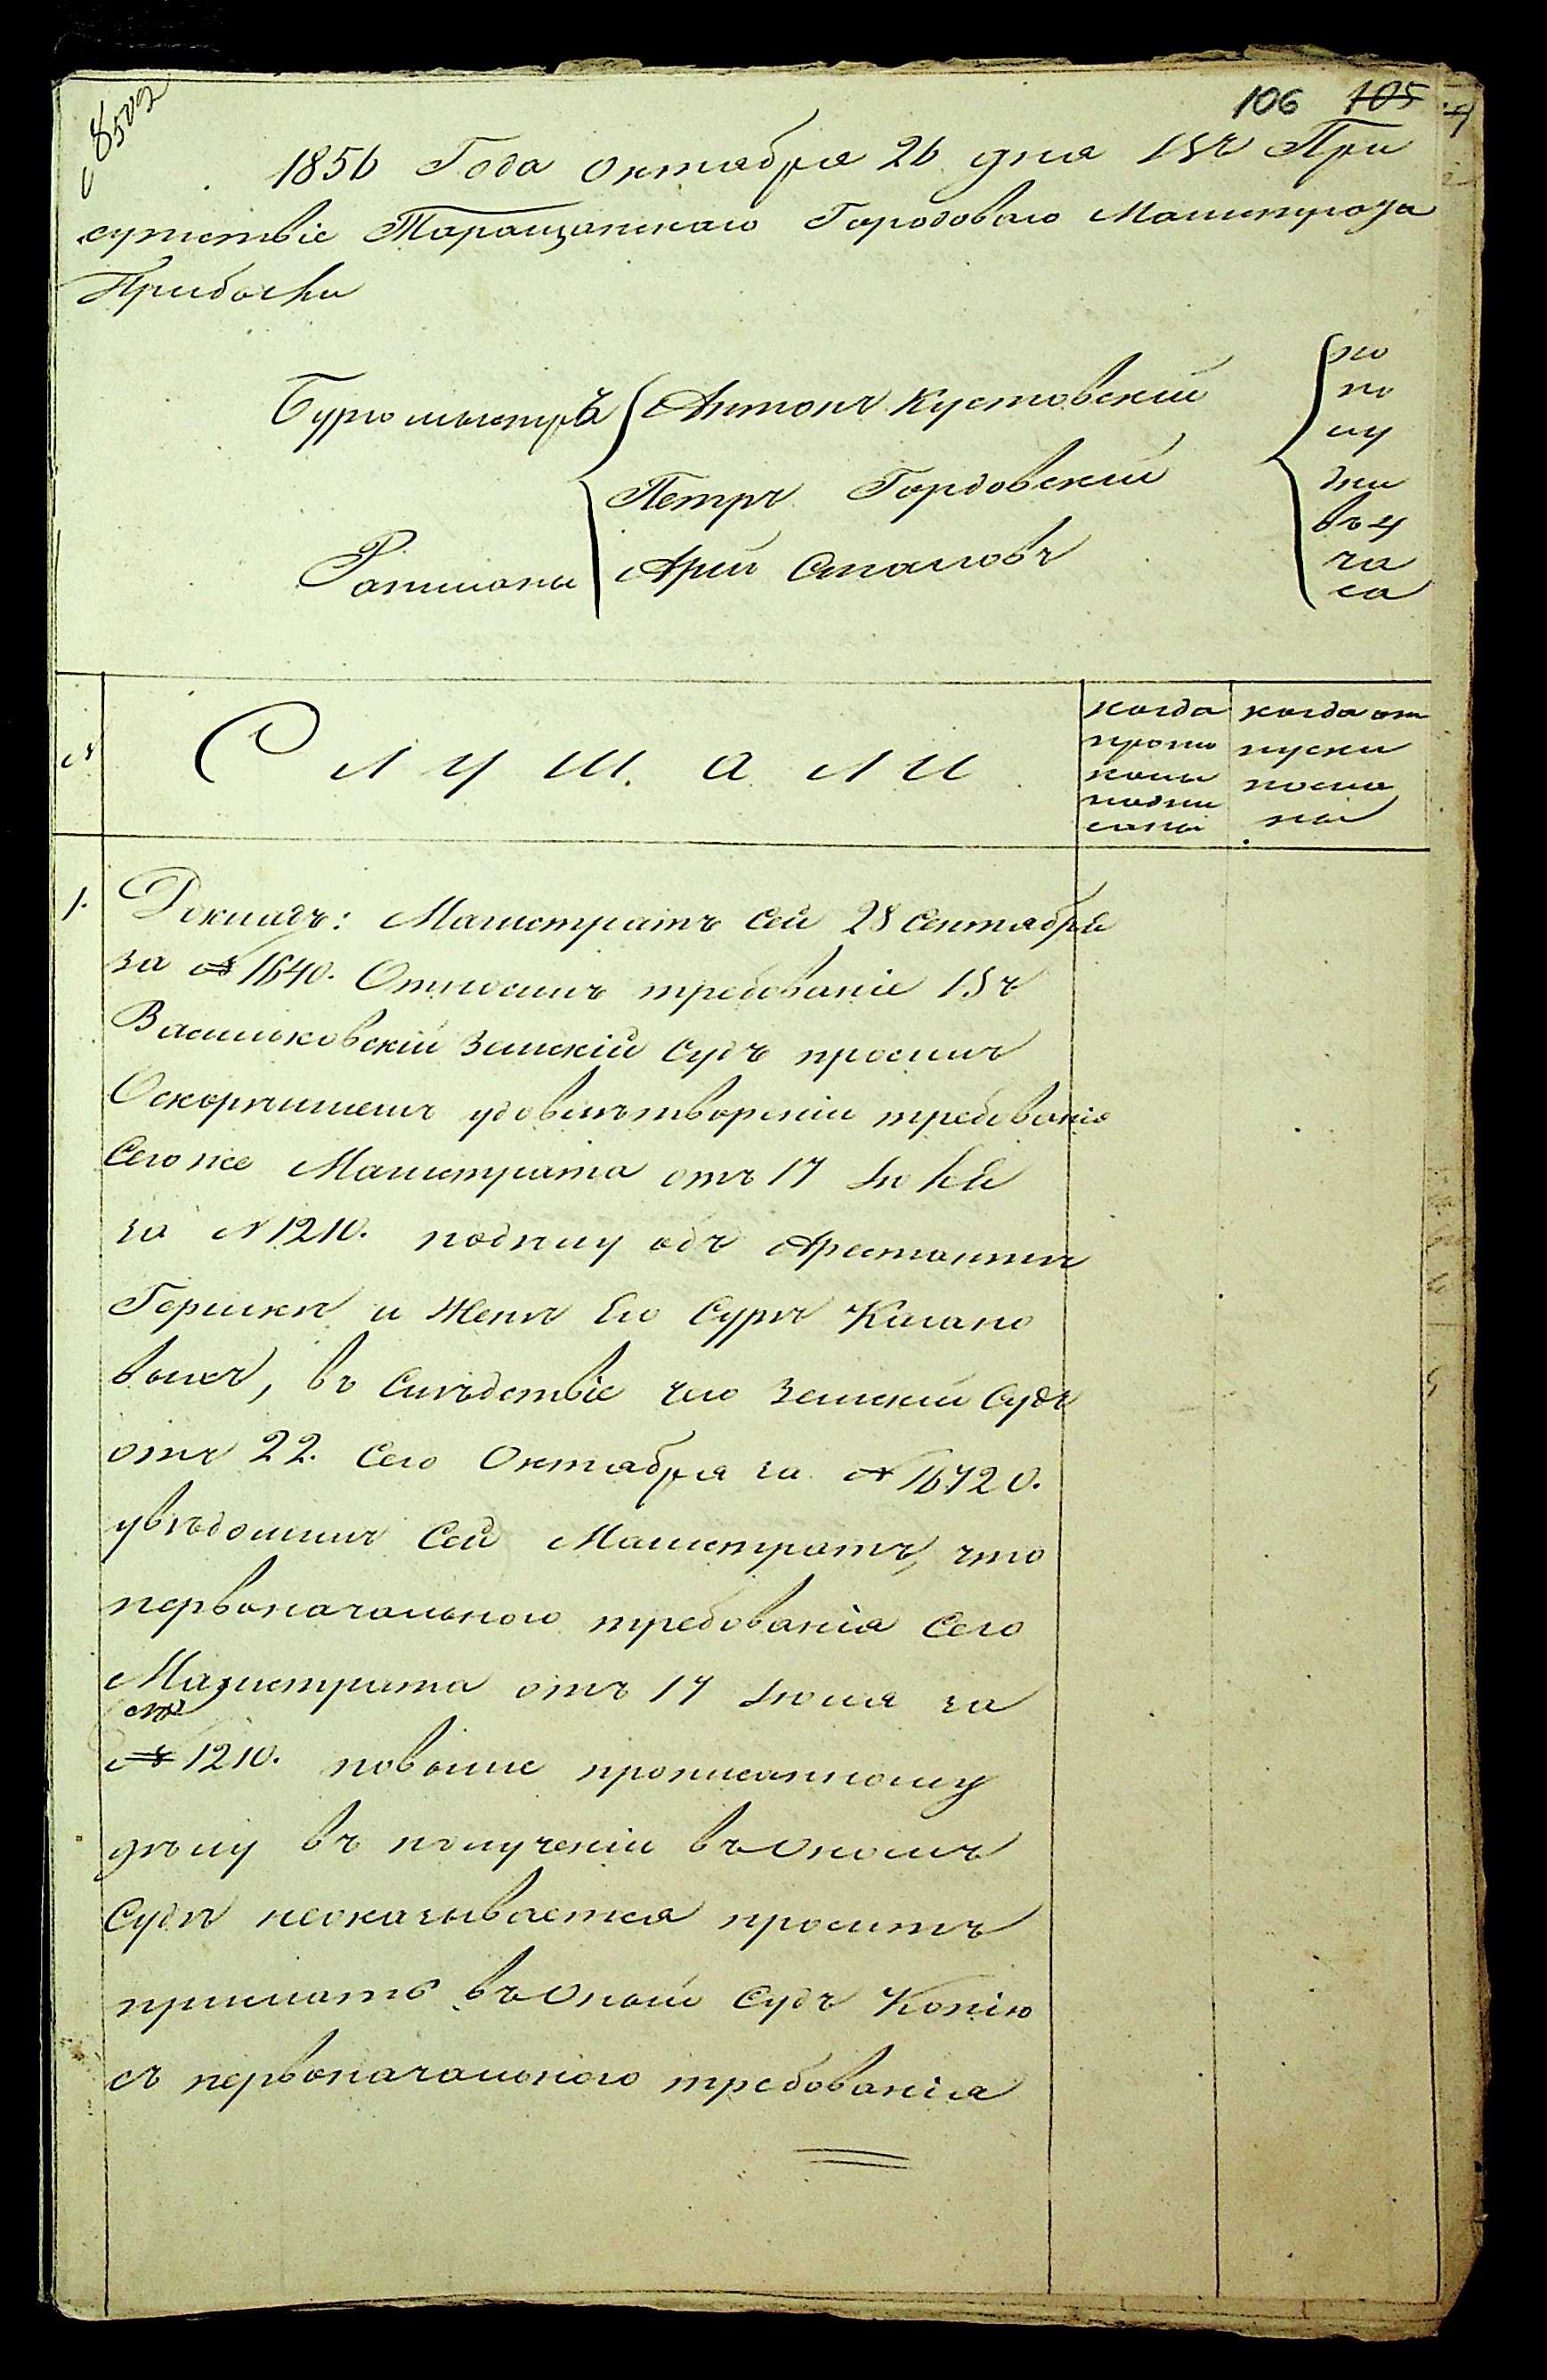 106 105
1856 Года Октября 26 дня Въ При
сутствіе Таращанскаго Городоваго Магистрата
Прибыли
Бургомыстръ Антонъ Кустовскій
Петръ Гордовскій
Ратманы Арій
по
по
лу
дни
въ 4
ча
са
№ Слушали
когда
прото
колы
подпи
саны
когда от
пуски
посла
ны
1. Докладъ: Магистратъ Сей 28 Сентября
за № 1640. Относилъ требованіе Въ
Васильковскій Земскій Судъ просилъ
О скорѣишемъ удовлетвореніи требованія
Сего же Магистрата отъ 17 Іюля
за № 1210. подѣлу объ Арестантѣ
Гершкѣ и Женѣ Его Сурѣ Кагано
выхъ, въ Слѣдствіе чего Земскій Судъ
отъ 22. Сего Октября за № 16720.
увѣдомилъ Сей Магистратъ, что
первоначального требованія Сего
Магистрата отъ 17 Іюля за
№ 1210. повыше прописанному
дѣлу въ полученіи въ Ономъ
Судѣ неоказывается проситъ
прислать въ Оный Судъ Копію
съ первоначального требованія